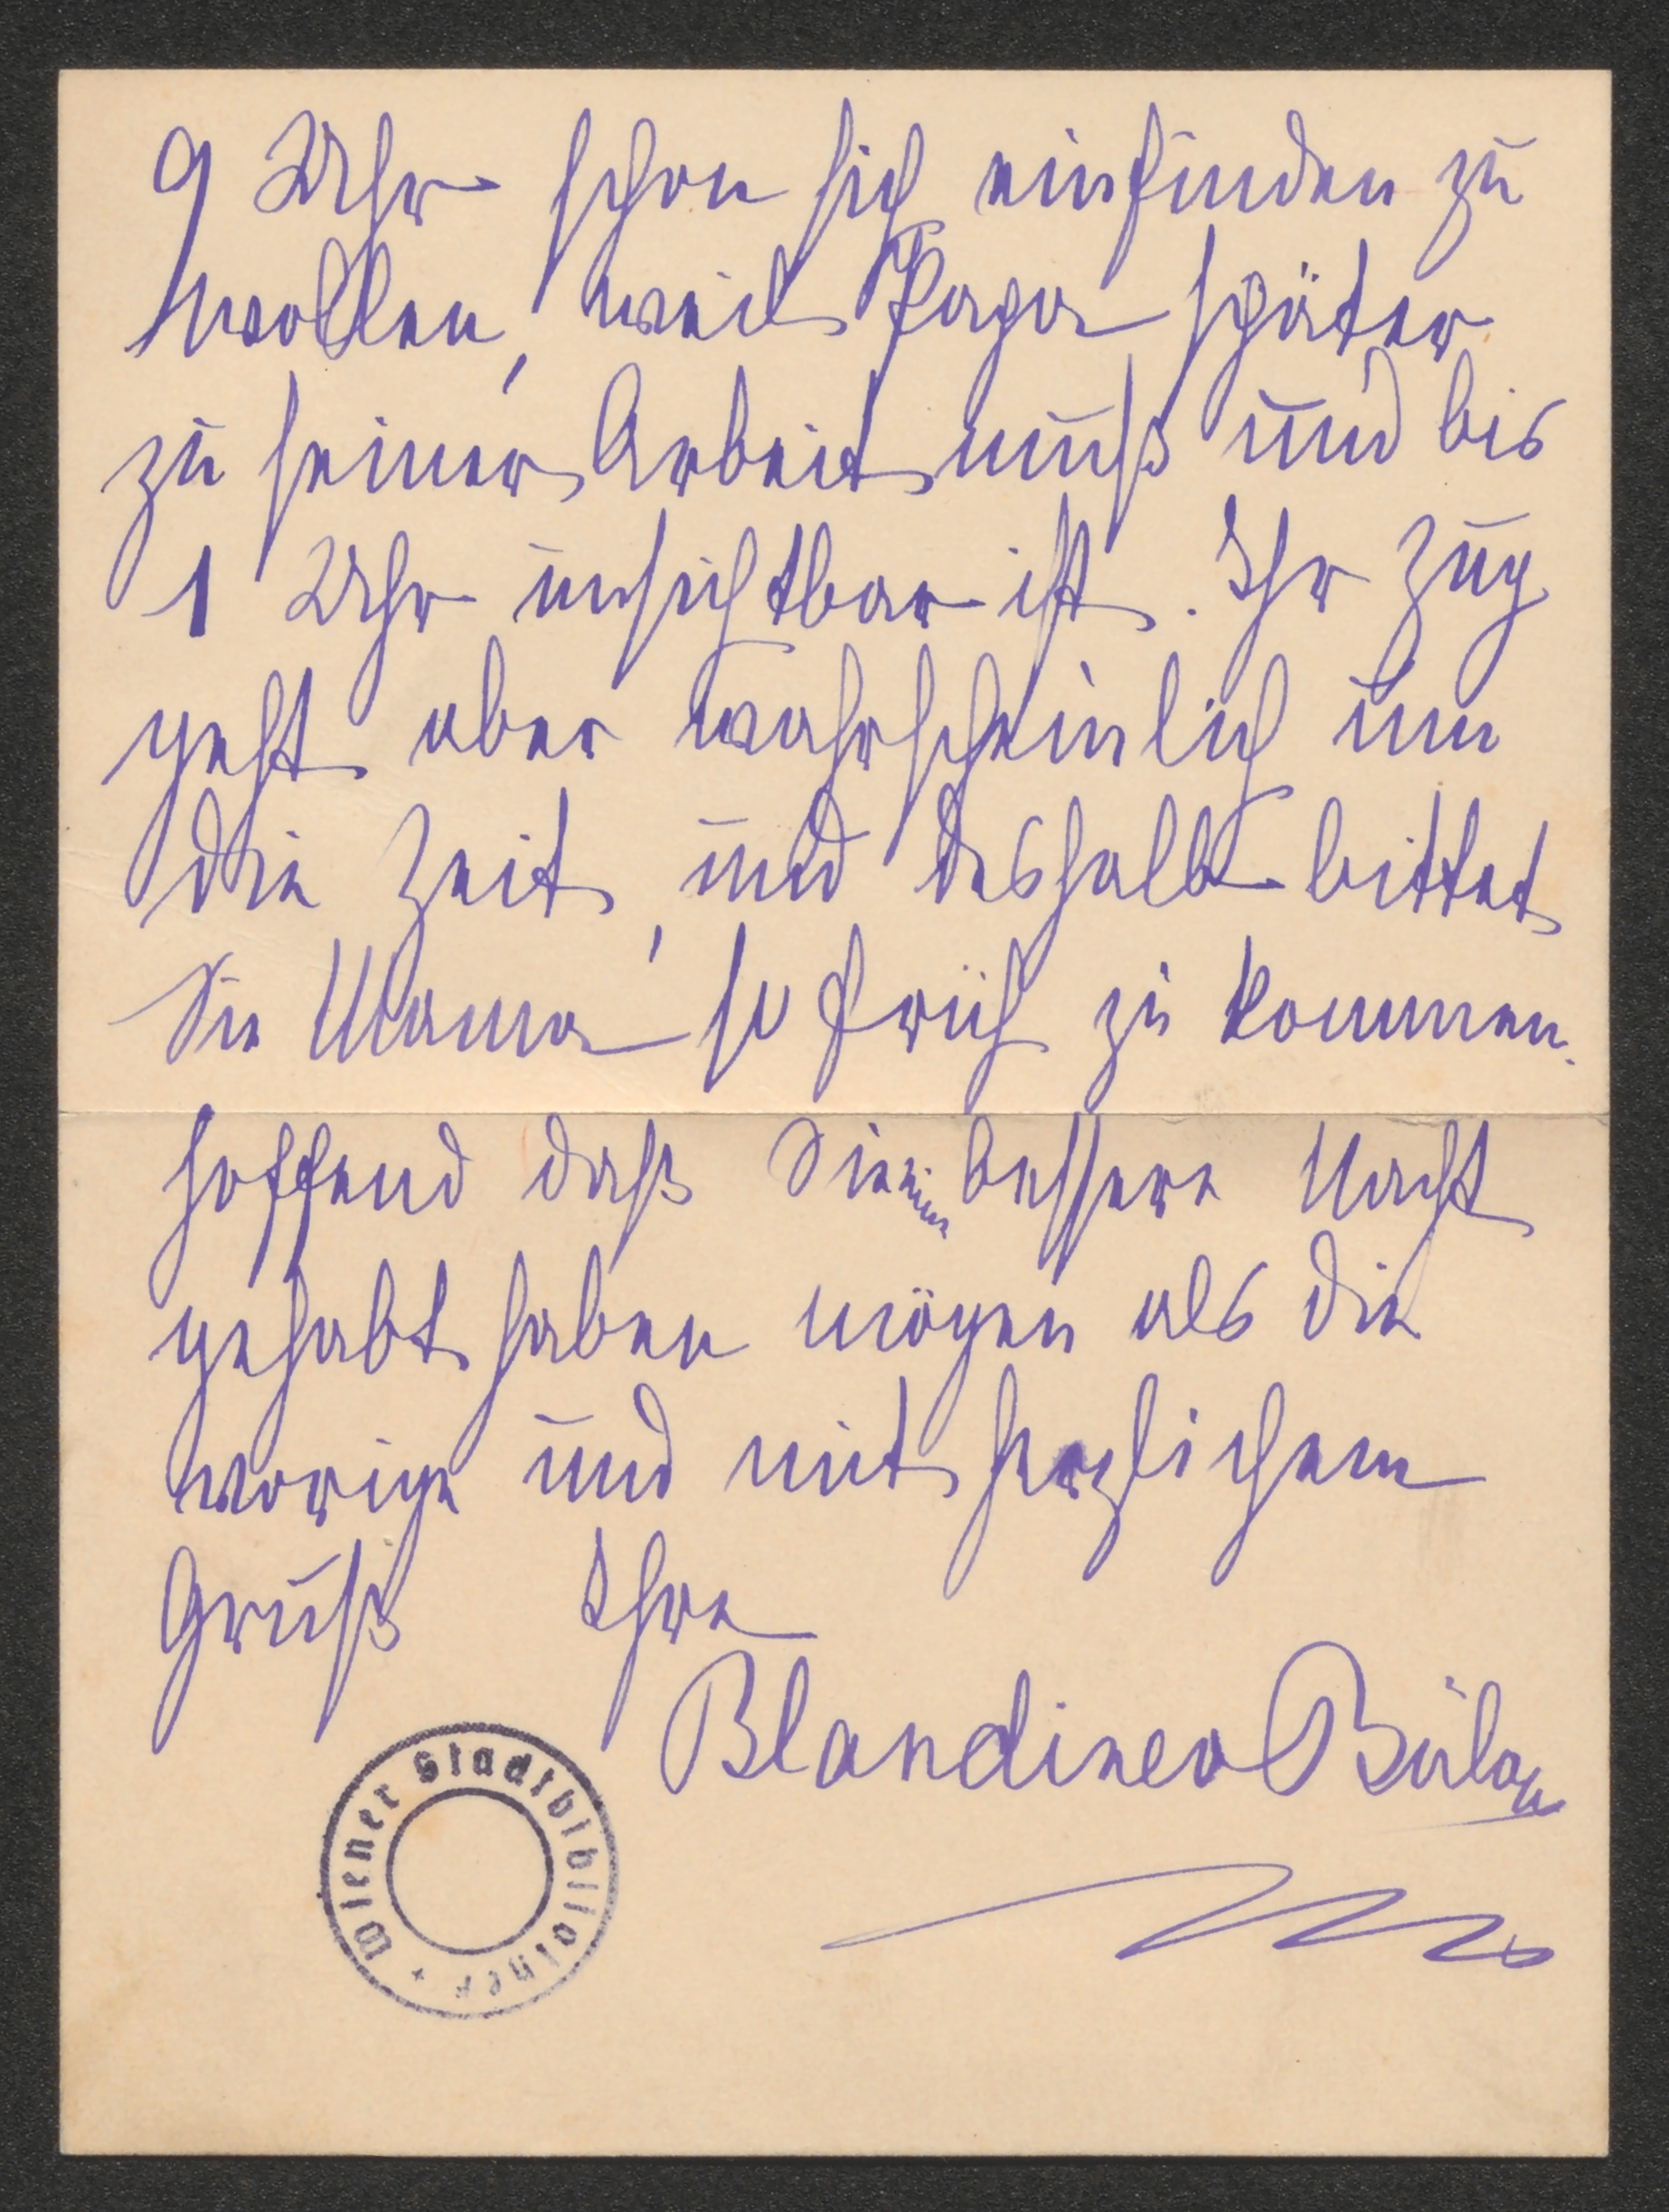 9 Uhr schon sich einfinden zu
wollen, weil Papa später
zu seiner Arbeit muß und bis
1 Uhr unsichtbar ist. Ihr Zug
geht aber wahrscheinlich um
die Zeit, und deshalb bittet
Sie Mama so früh zu kommen.
Hoffend daß Sie eine bessere Nacht
gehabt haben mögen als die
vorige und mit herzlichem
Gruß Ihre
Blandine v Bülow
Wiener Stadtbibliothek